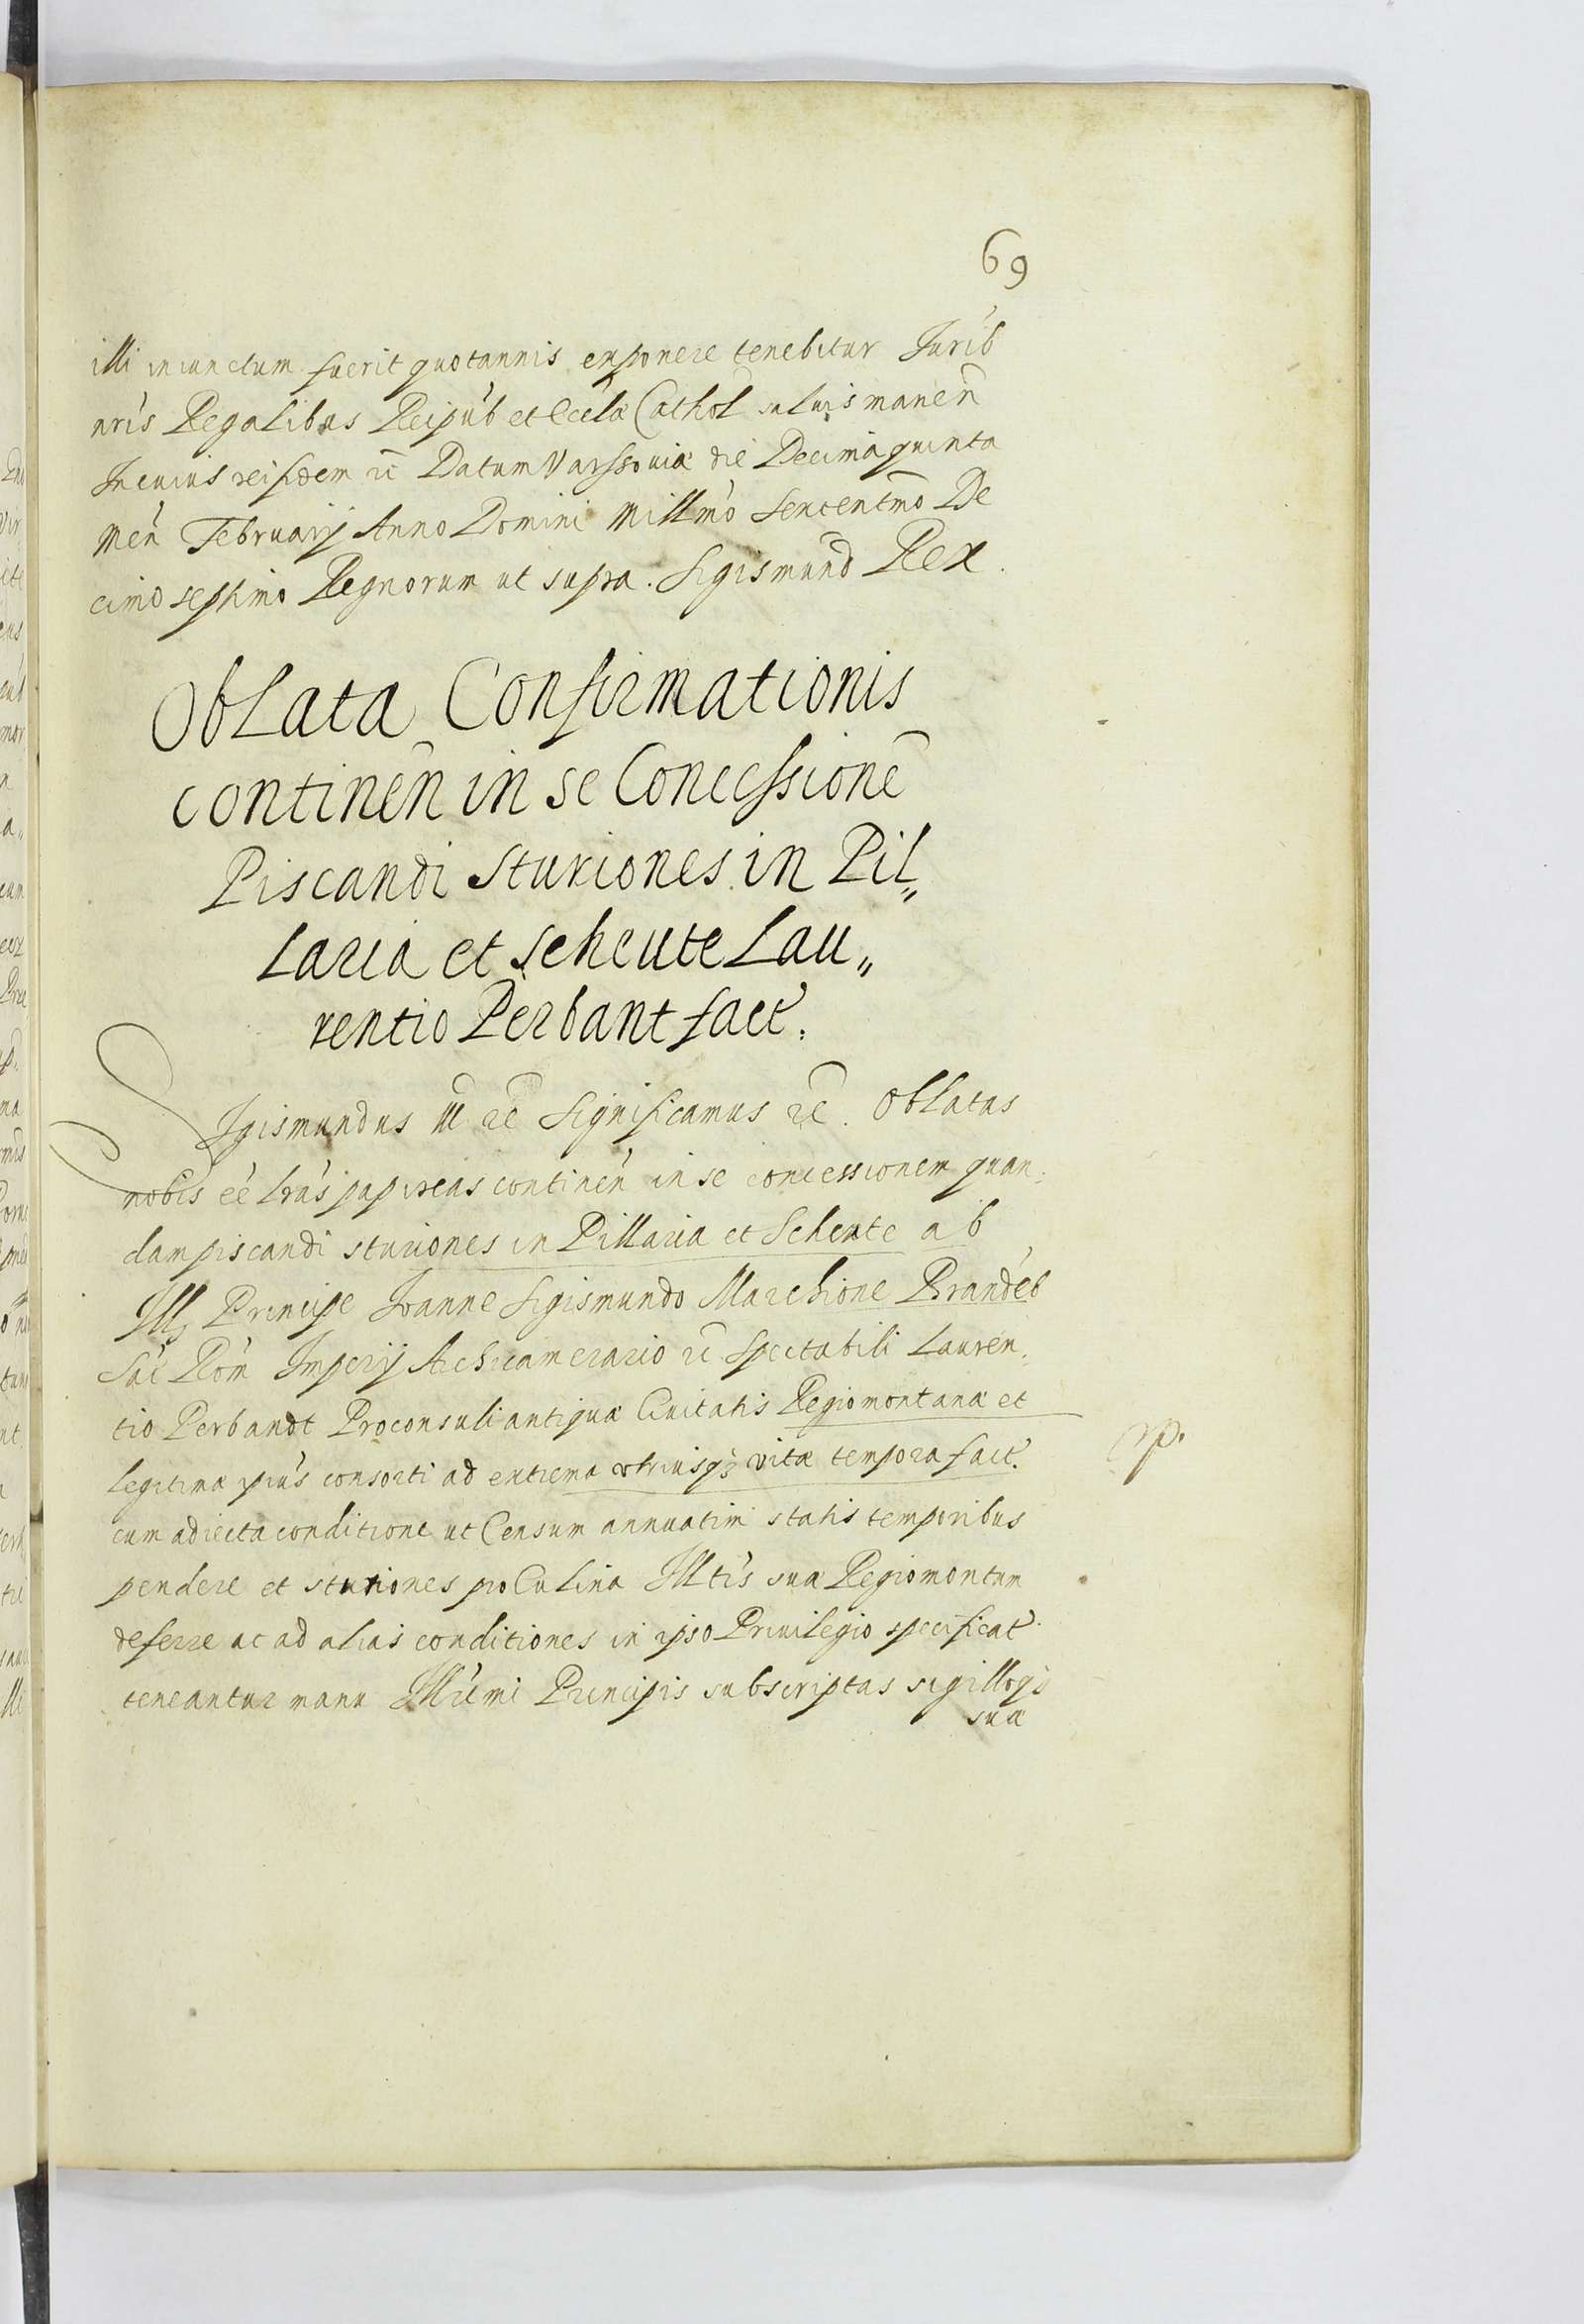 69
illi iniunctum fuerit quotannis exponere tenebitur Jurib
nris Regalibus Reipub et Eccla Cathol saluis manen
In cuius rei fidem rc Datum Varssouiæ die Decima quinta
Men Februarij Anno Domini Millmo Sexcentmo De
cimo septimo Regnorum ut supra. Sigismund Rex.
Oblata Confirmationis
continen in se Concessione
Piscandi Sturiones in Pil„
laria et Scheute Lau„
rentio Perbant fact.
Sigismundus III rc Significamus rc. Oblatas
nobis eé Lras papireas continen in se concessionem quan„
dam piscandi sturiones in Pillaria et Scheute ab
Illr Principe Joanne Sigismundo Marchione Brandeb
Sac Rom Imperij Archicamerario rc Spectabili Lauren„
tio Perbandt Proconsuli antiquæ Ciuitatis Regiomontanæ et
legitimæ ipius consorti ad extrema vtriusq; vitæ tempora fact.
cum adiecta conditione ut Censum annuatim statis temporibus
pendere et sturiones pro Culina Illtis suæ Regiomontum
deferre ac ad alias conditiones in ipso Priuilegio specificat
teneantur manu Illrimi Principis subscriptas sigilloq;
suæ